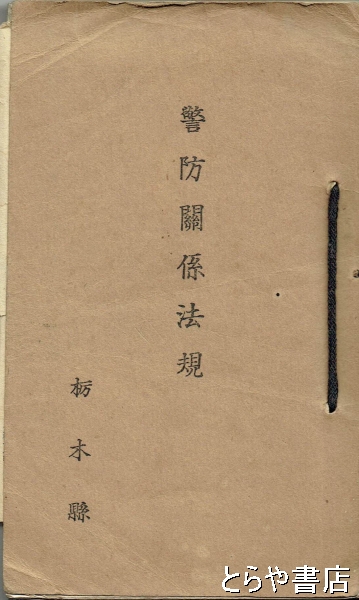 警防關係法規
栃木縣
とらや書店